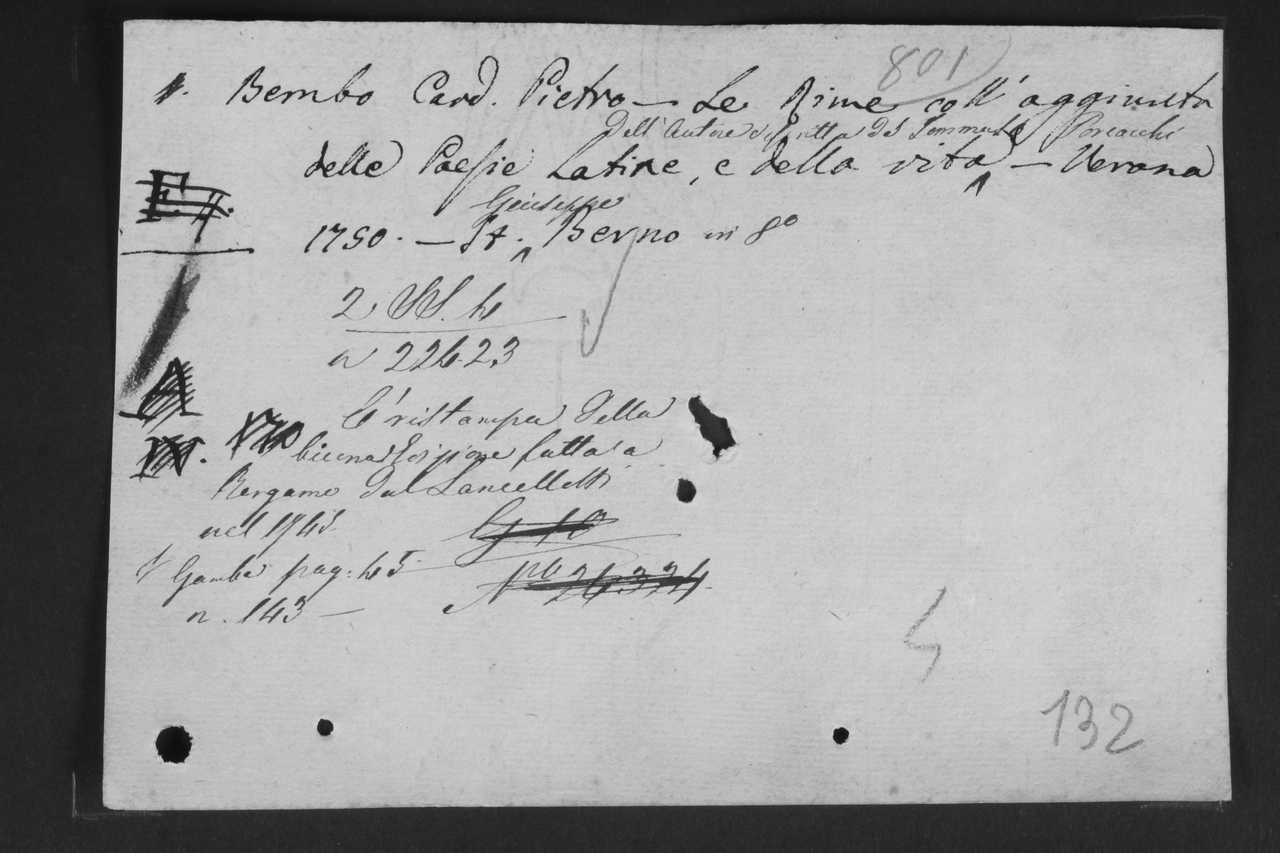 801
1. Bembo Card. Pietro — Le Rime coll' aggiunta
Dell' Autore scritta da Tommaso Porcacchi
delle Poesie Latine, e della vita — Verona
Giuseppe
1750. — Pt. Berno in 8º
2 SS. h
n 22623
E' ristampa della
buona Edizione fatta a
Bergamo dal Lancellotti
nel 1745
Gamba pag: 45
n. 143 —
Nº 26334
132